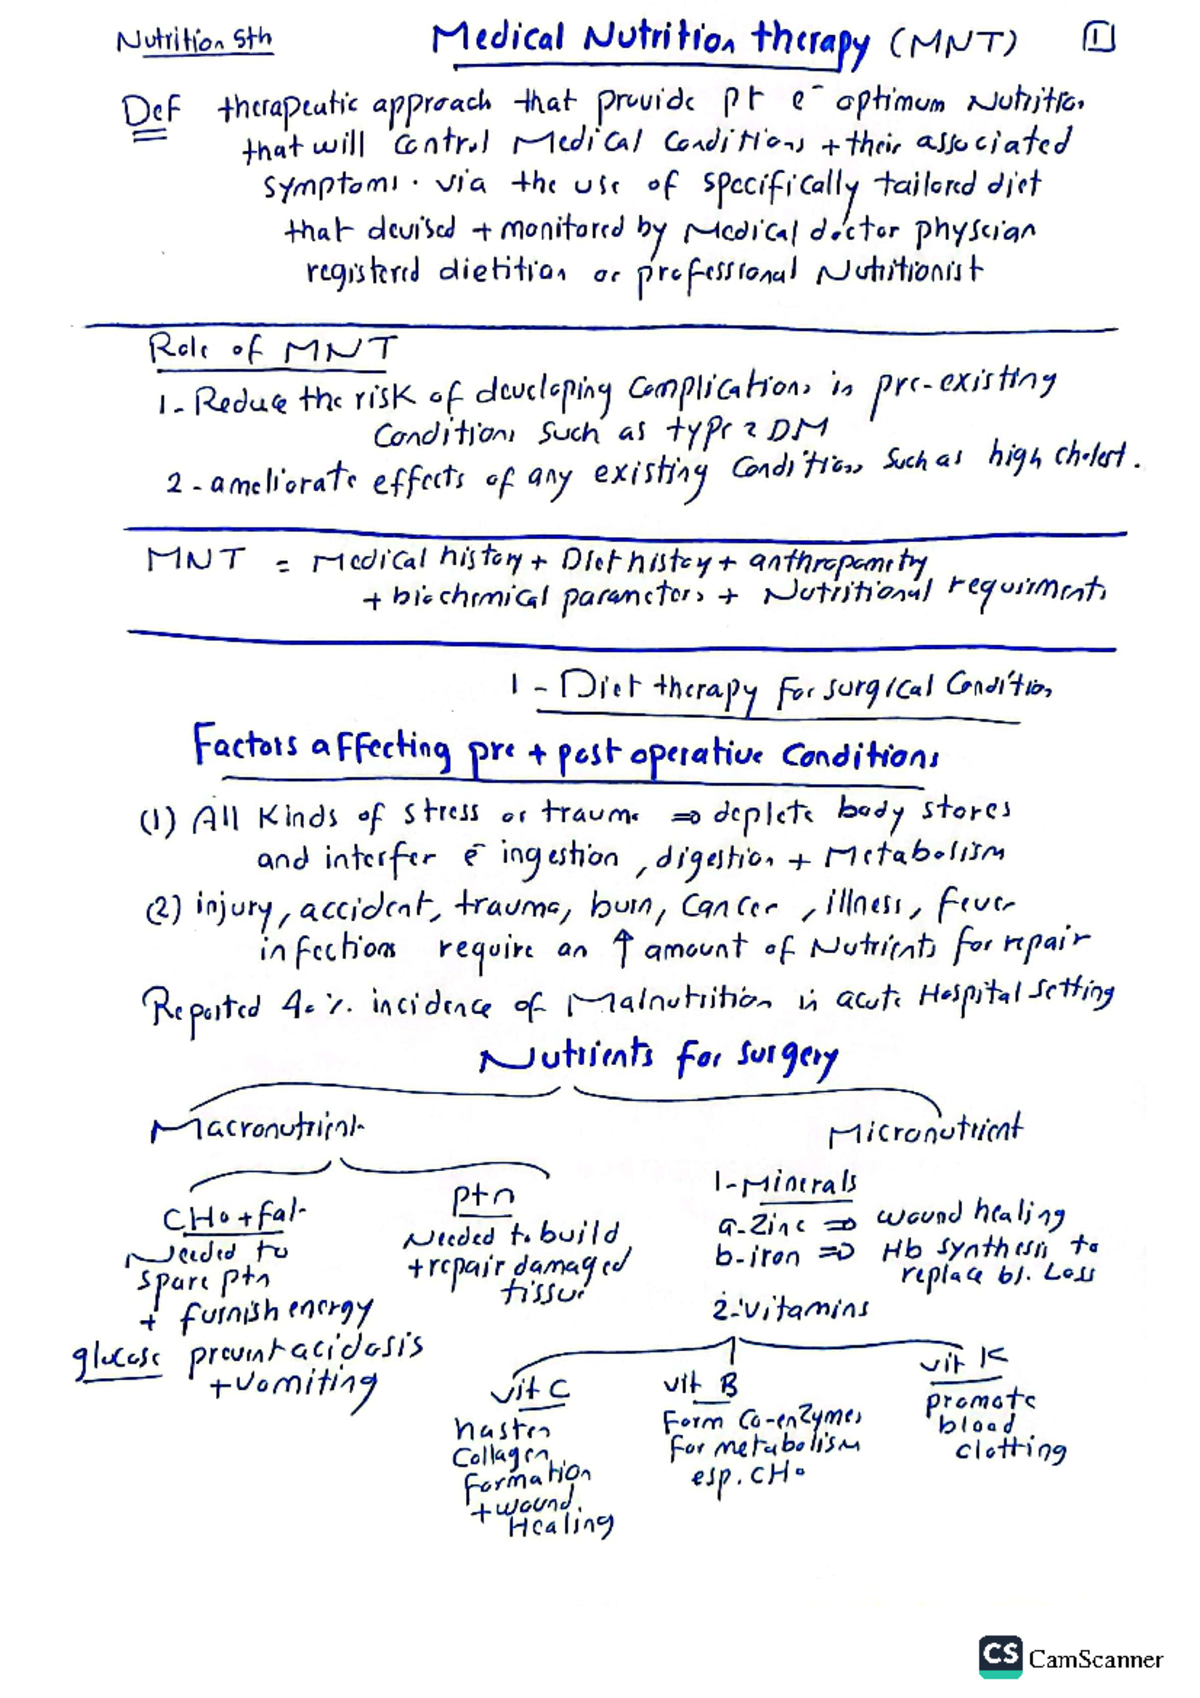 Nutrition 5th
Medical Nutrition therapy (MNT)
1
Def therapeutic approach that provide pt ē optimum Nutrition
that will Control Medical Conditions + their associated
symptoms. via the use of specifically tailored diet
that devised + monitored by Medical doctor physcian
registered dietition or professional Nutritionist
Role of MNT
1- Reduce the risk of developing Complications in pre-existing
Conditions such as type 2 DM
2- ameliorate effects of any existing Conditions such as high cholest.
MNT = Medical history + Diet history + anthropometry
+ biochemical parameters + Nutritional requirments
1- Diet therapy For surgical Condition
Factors affecting pre + post operative Conditions
(1) All Kinds of stress or trauma ⇒ deplete body stores
and interfer ē ingestion, digestion + Metabolism
(2) injury, accident, trauma, burn, Cancer, illness, fever
infections require an ↑ amount of Nutrients for repair
Reported 40% incidence of Malnutrition in acute Hospital setting
Nutrients for surgery
Macronutrient
Micronutrient
CHo + fat
Needed to
spare ptn
+ furnish energy
glucose prevent acidosis
+ vomiting
ptn
Needed to build
+ repair damaged
tissue
1- Minerals
a- Zinc ⇒ wound healing
b- iron ⇒ Hb synthesis to
replace bl. Loss
2- Vitamins
vit C
hasten
Collagen
Formation
+ wound
Healing
vit B
Form Co-enzymes
For metabolism
esp. CHo
vit K
promote
blood
clotting
CS CamScanner